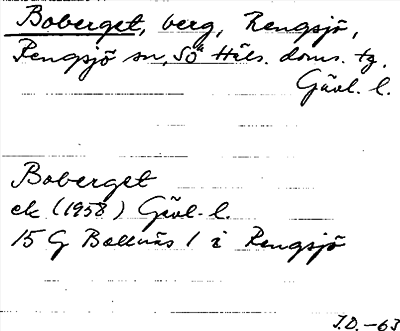 Boberget, berg, Rengsjö,
Rengsjö sn, SÖ Häls. doms. tg.
Gävl. l.
Boberget
ek (1958) Gävl. l.
15 G Bollnäs 1 i Rengsjö
J.D. -63